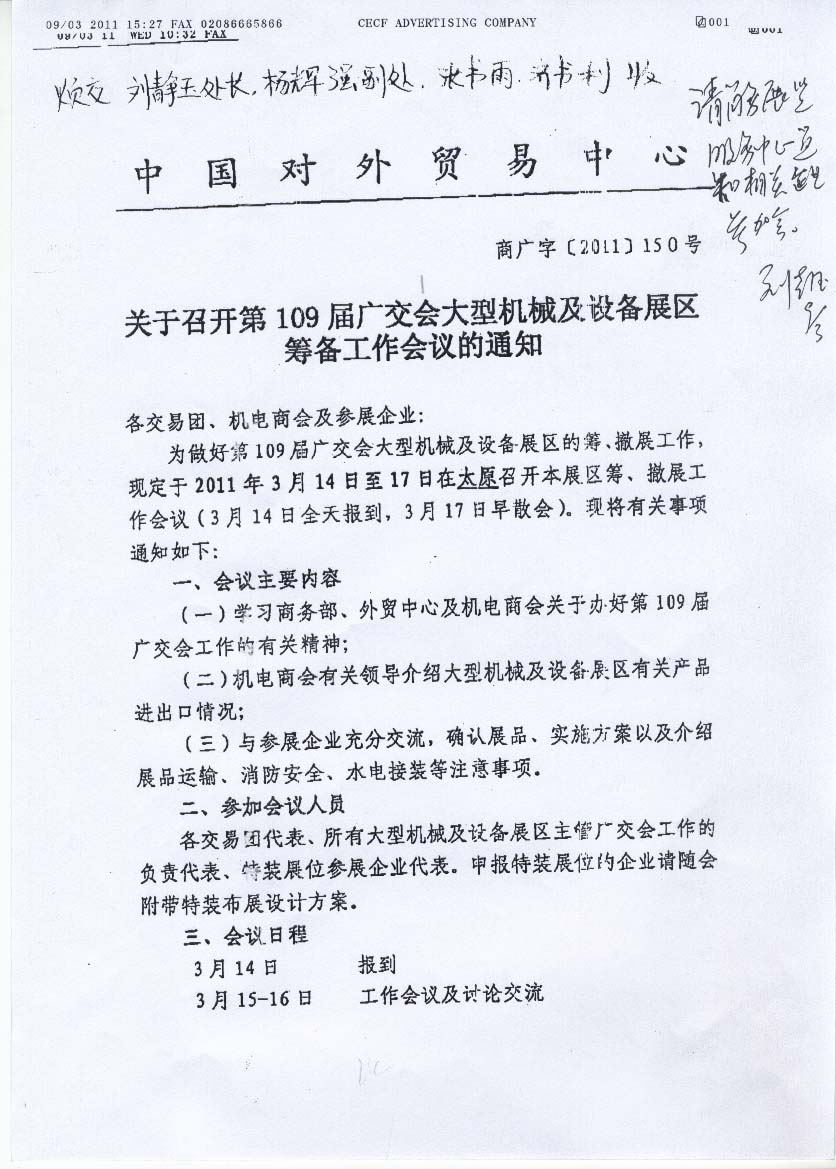 09/03 2011 15:27 FAX 02086665866 CECF ADVERTISING COMPANY 001
09/03 11 WED 10:32 FAX 001
烦交 刘静玉处长,杨辉强副处
中国对外贸易中心
商广字〔2011〕150号
关于召开第 109 届广交会大型机械及设备展区
筹备工作会议的通知
各交易团、机电商会及参展企业:
为做好第 109 届广交会大型机械及设备展区的筹、撤展工作,
现定于 2011 年 3 月 14 日至 17 日在太原召开本展区筹、撤展工
作会议(3 月 14 日全天报到,3 月 17 日早散会)。现将有关事项
通知如下:
一、会议主要内容
(一)学习商务部、外贸中心及机电商会关于办好第 109 届
广交会工作的有关精神;
(二)机电商会有关领导介绍大型机械及设备展区有关产品
进出口情况;
(三)与参展企业充分交流,确认展品、实施方案以及介绍
展品运输、消防安全、水电接装等注意事项。
二、参加会议人员
各交易团代表、所有大型机械及设备展区主管广交会工作的
负责代表、特装展位参展企业代表。申报特装展位的企业请随会
附带特装布展设计方案。
三、会议日程
3 月 14 日 报到
3 月 15-16 日 工作会议及讨论交流